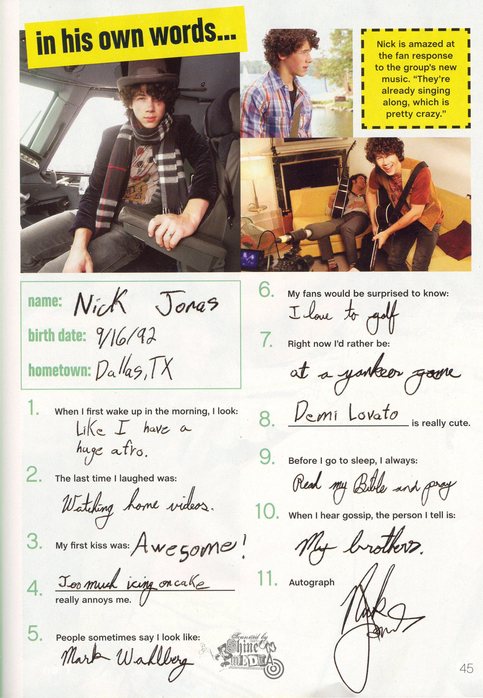 in his own words...
Nick is amazed at
the fan response
to the group's new
music. "They're
already singing
along, which is
pretty crazy."
name: Nick Jonas
birth date: 9/16/92
hometown: Dallas, TX
1. When I first wake up in the morning, I look:
Like I have a
huge afro.
2. The last time I laughed was:
Watching home videos.
3. My first kiss was: Awesome!
4. Too much icing on cake
really annoys me.
5. People sometimes say I look like:
Mark Wahlberg
6. My fans would be surprised to know:
I love to golf
7. Right now I'd rather be:
at a yankees game
8. Demi Lovato is really cute.
9. Before I go to sleep, I always:
Read my Bible and pray
10. When I hear gossip, the person I tell is:
My brothers.
11. Autograph
Nick Jonas
Scanned by
Shine
45